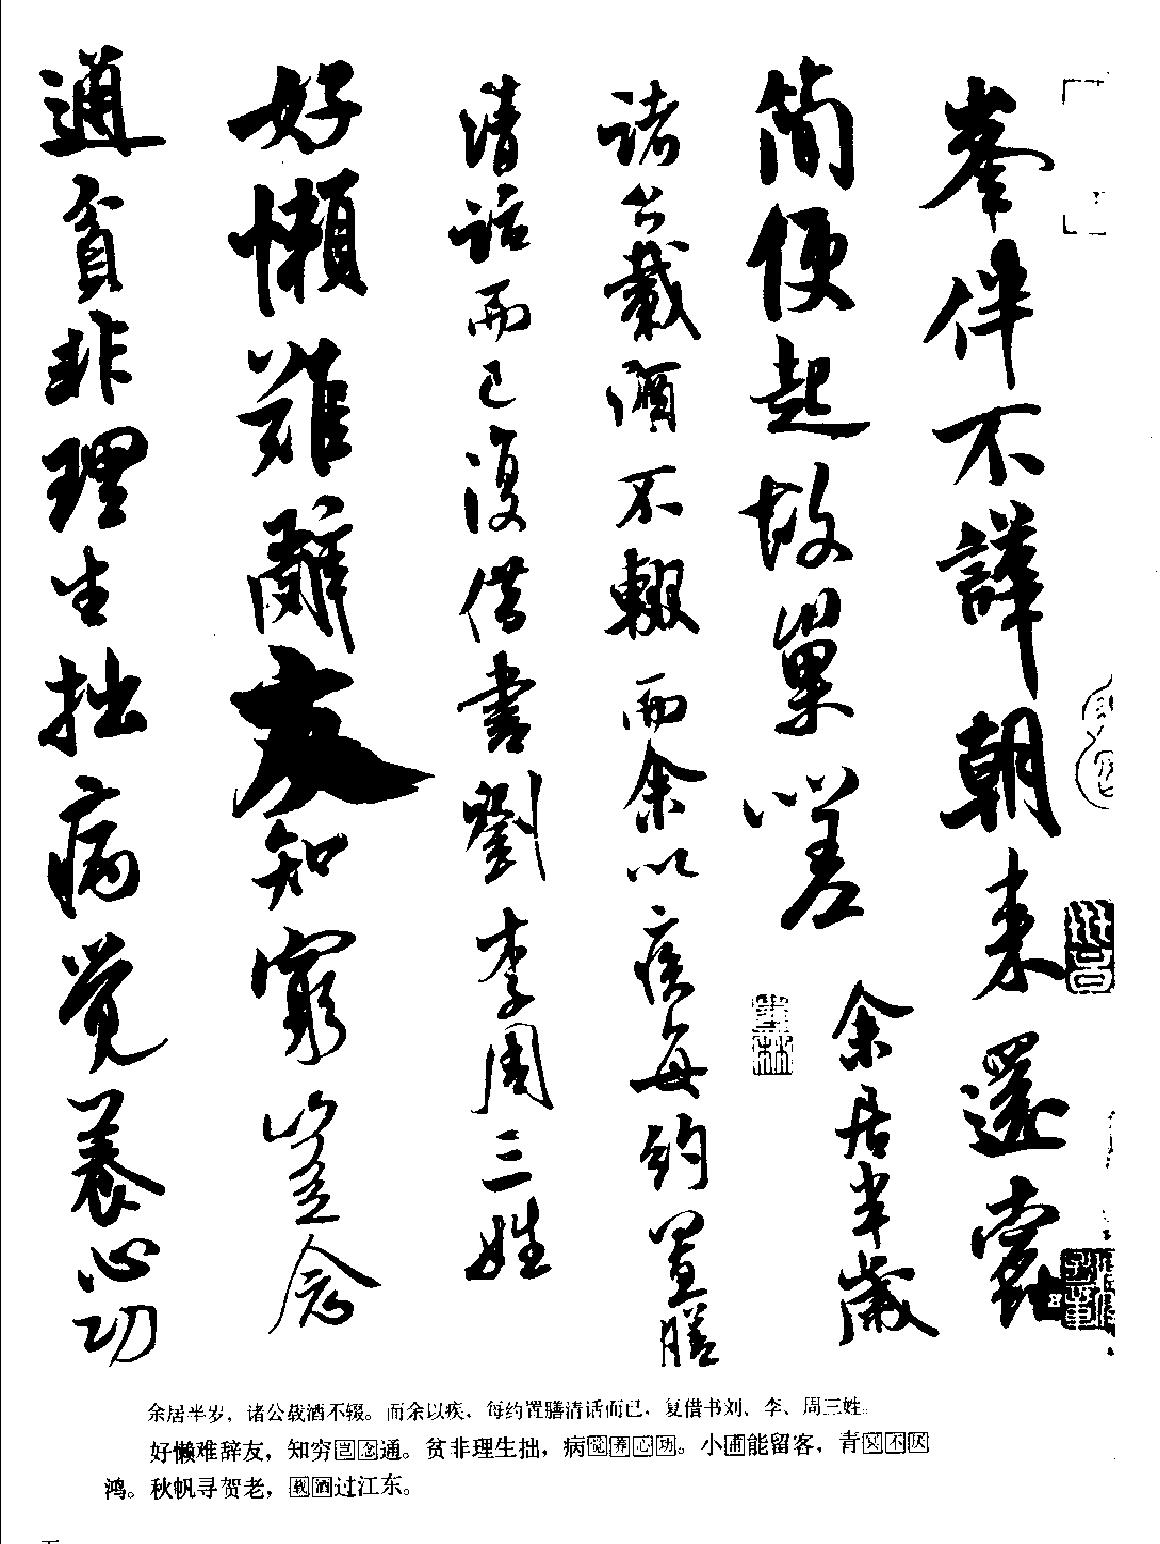 峯伴不譁朝来還蠹
簡便起故巢嗟
余居半歲
諸公載酒不輟而余以疾每約置膳
清話而已復借書劉李周三姓
好懶難辭友知窮豈念
通貧非理生拙病覺養心功
余居半岁，诸公载酒不辍。而余以疾，每约置膳清话而已，复借书刘、李、周三姓。
好懒难辞友，知穷岂念通。贫非理生拙，病觉养心功。小圃能留客，青冥不厌
鸿。秋帆寻贺老，载酒过江东。